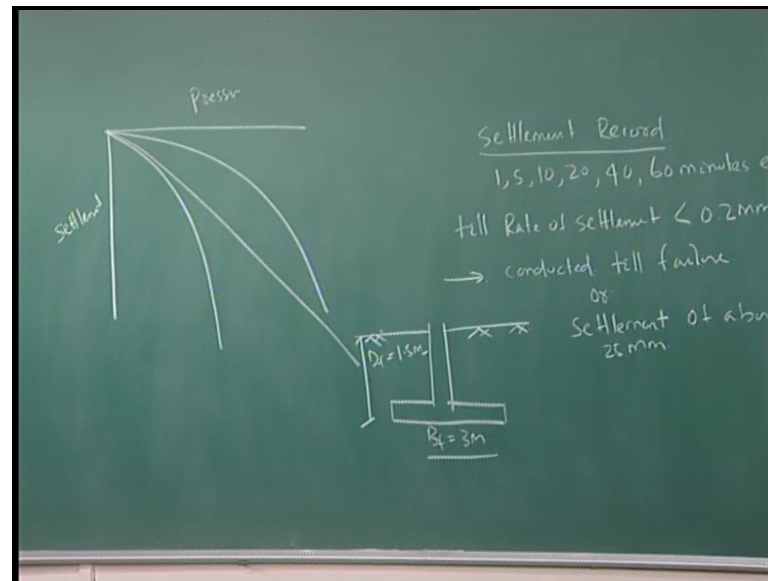 Pressur
Settlement
Settlement Record
1, 5, 10, 20, 40, 60 minutes
till Rate of settlement < 0.2mm
→ conducted till failure
or
Settlement of
25 mm
Df = 1.5m
Bf = 3m